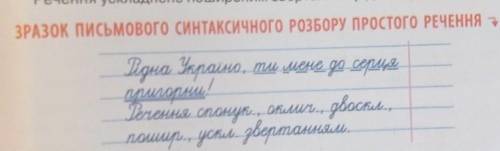 Речення ускладнене поширеним
ЗРАЗОК ПИСЬМОВОГО СИНТАКСИЧНОГО РОЗБОРУ ПРОСТОГО РЕЧЕННЯ
Рідна Україно, ти мене до серця
пригорни!
Речення спонук., оклич., двоскл.,
пошир., ускл. звертанням.